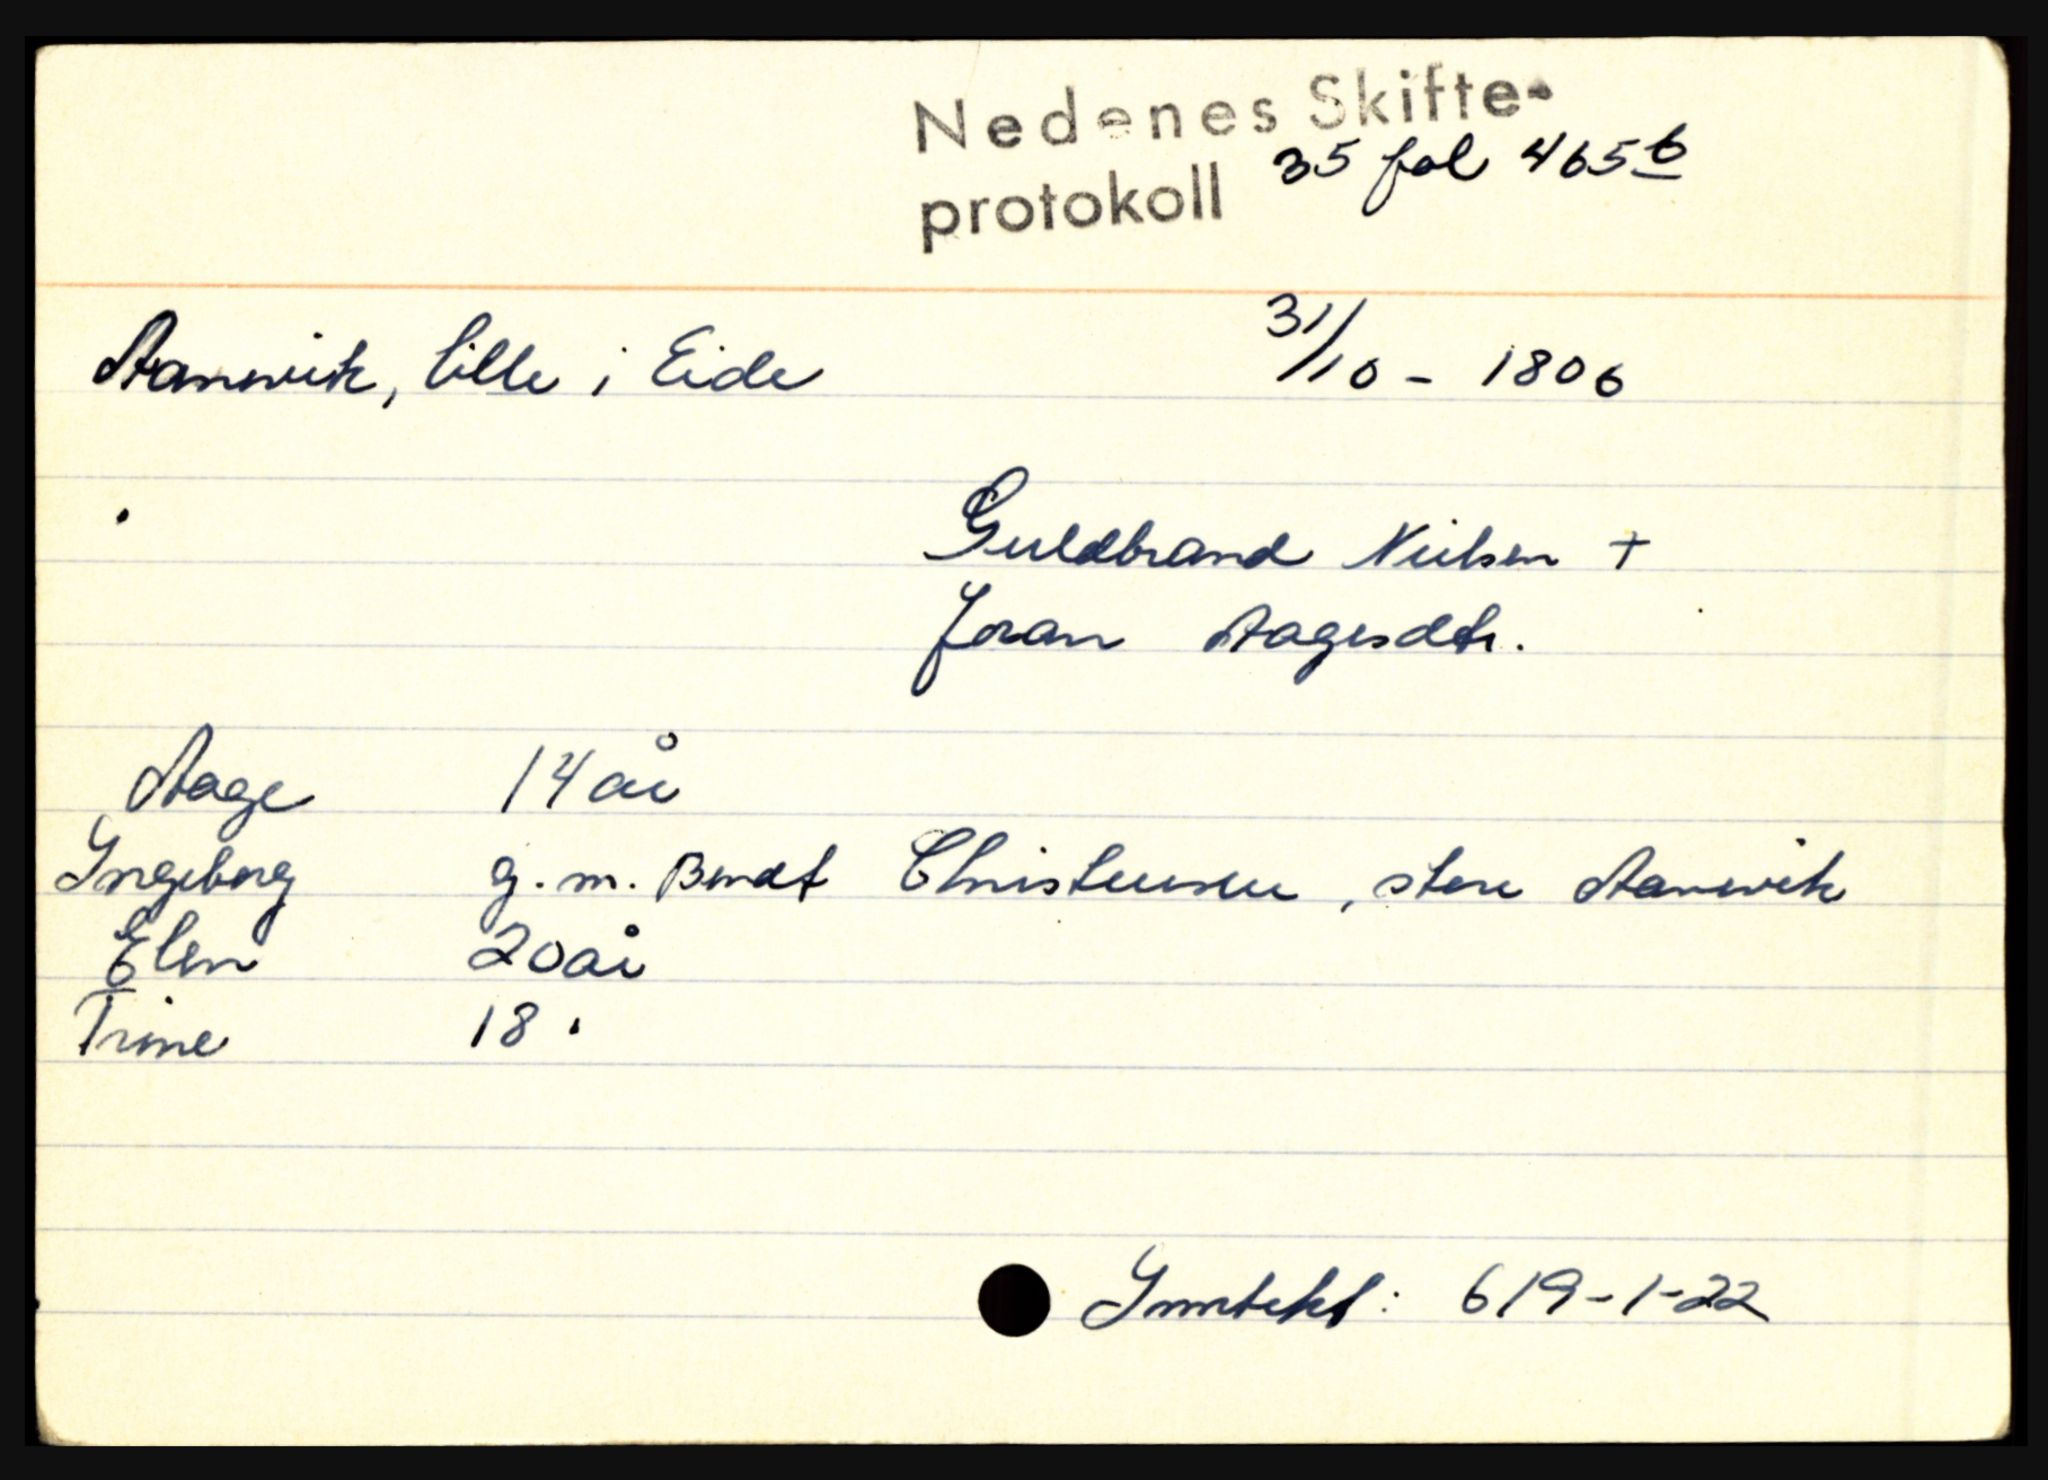 Nedenes Skifte-
protokoll 35 fol 465b
Aamwik, lille i Eide 31/10 - 1806
Guldbrand Nielsen +
Joran Aagesdtr.
Aage 14 år
Ingeborg g. m. Berndt Christensen, store Aamwik
Elen 20 år
Trine 18 "
Inntekt: 619-1-22